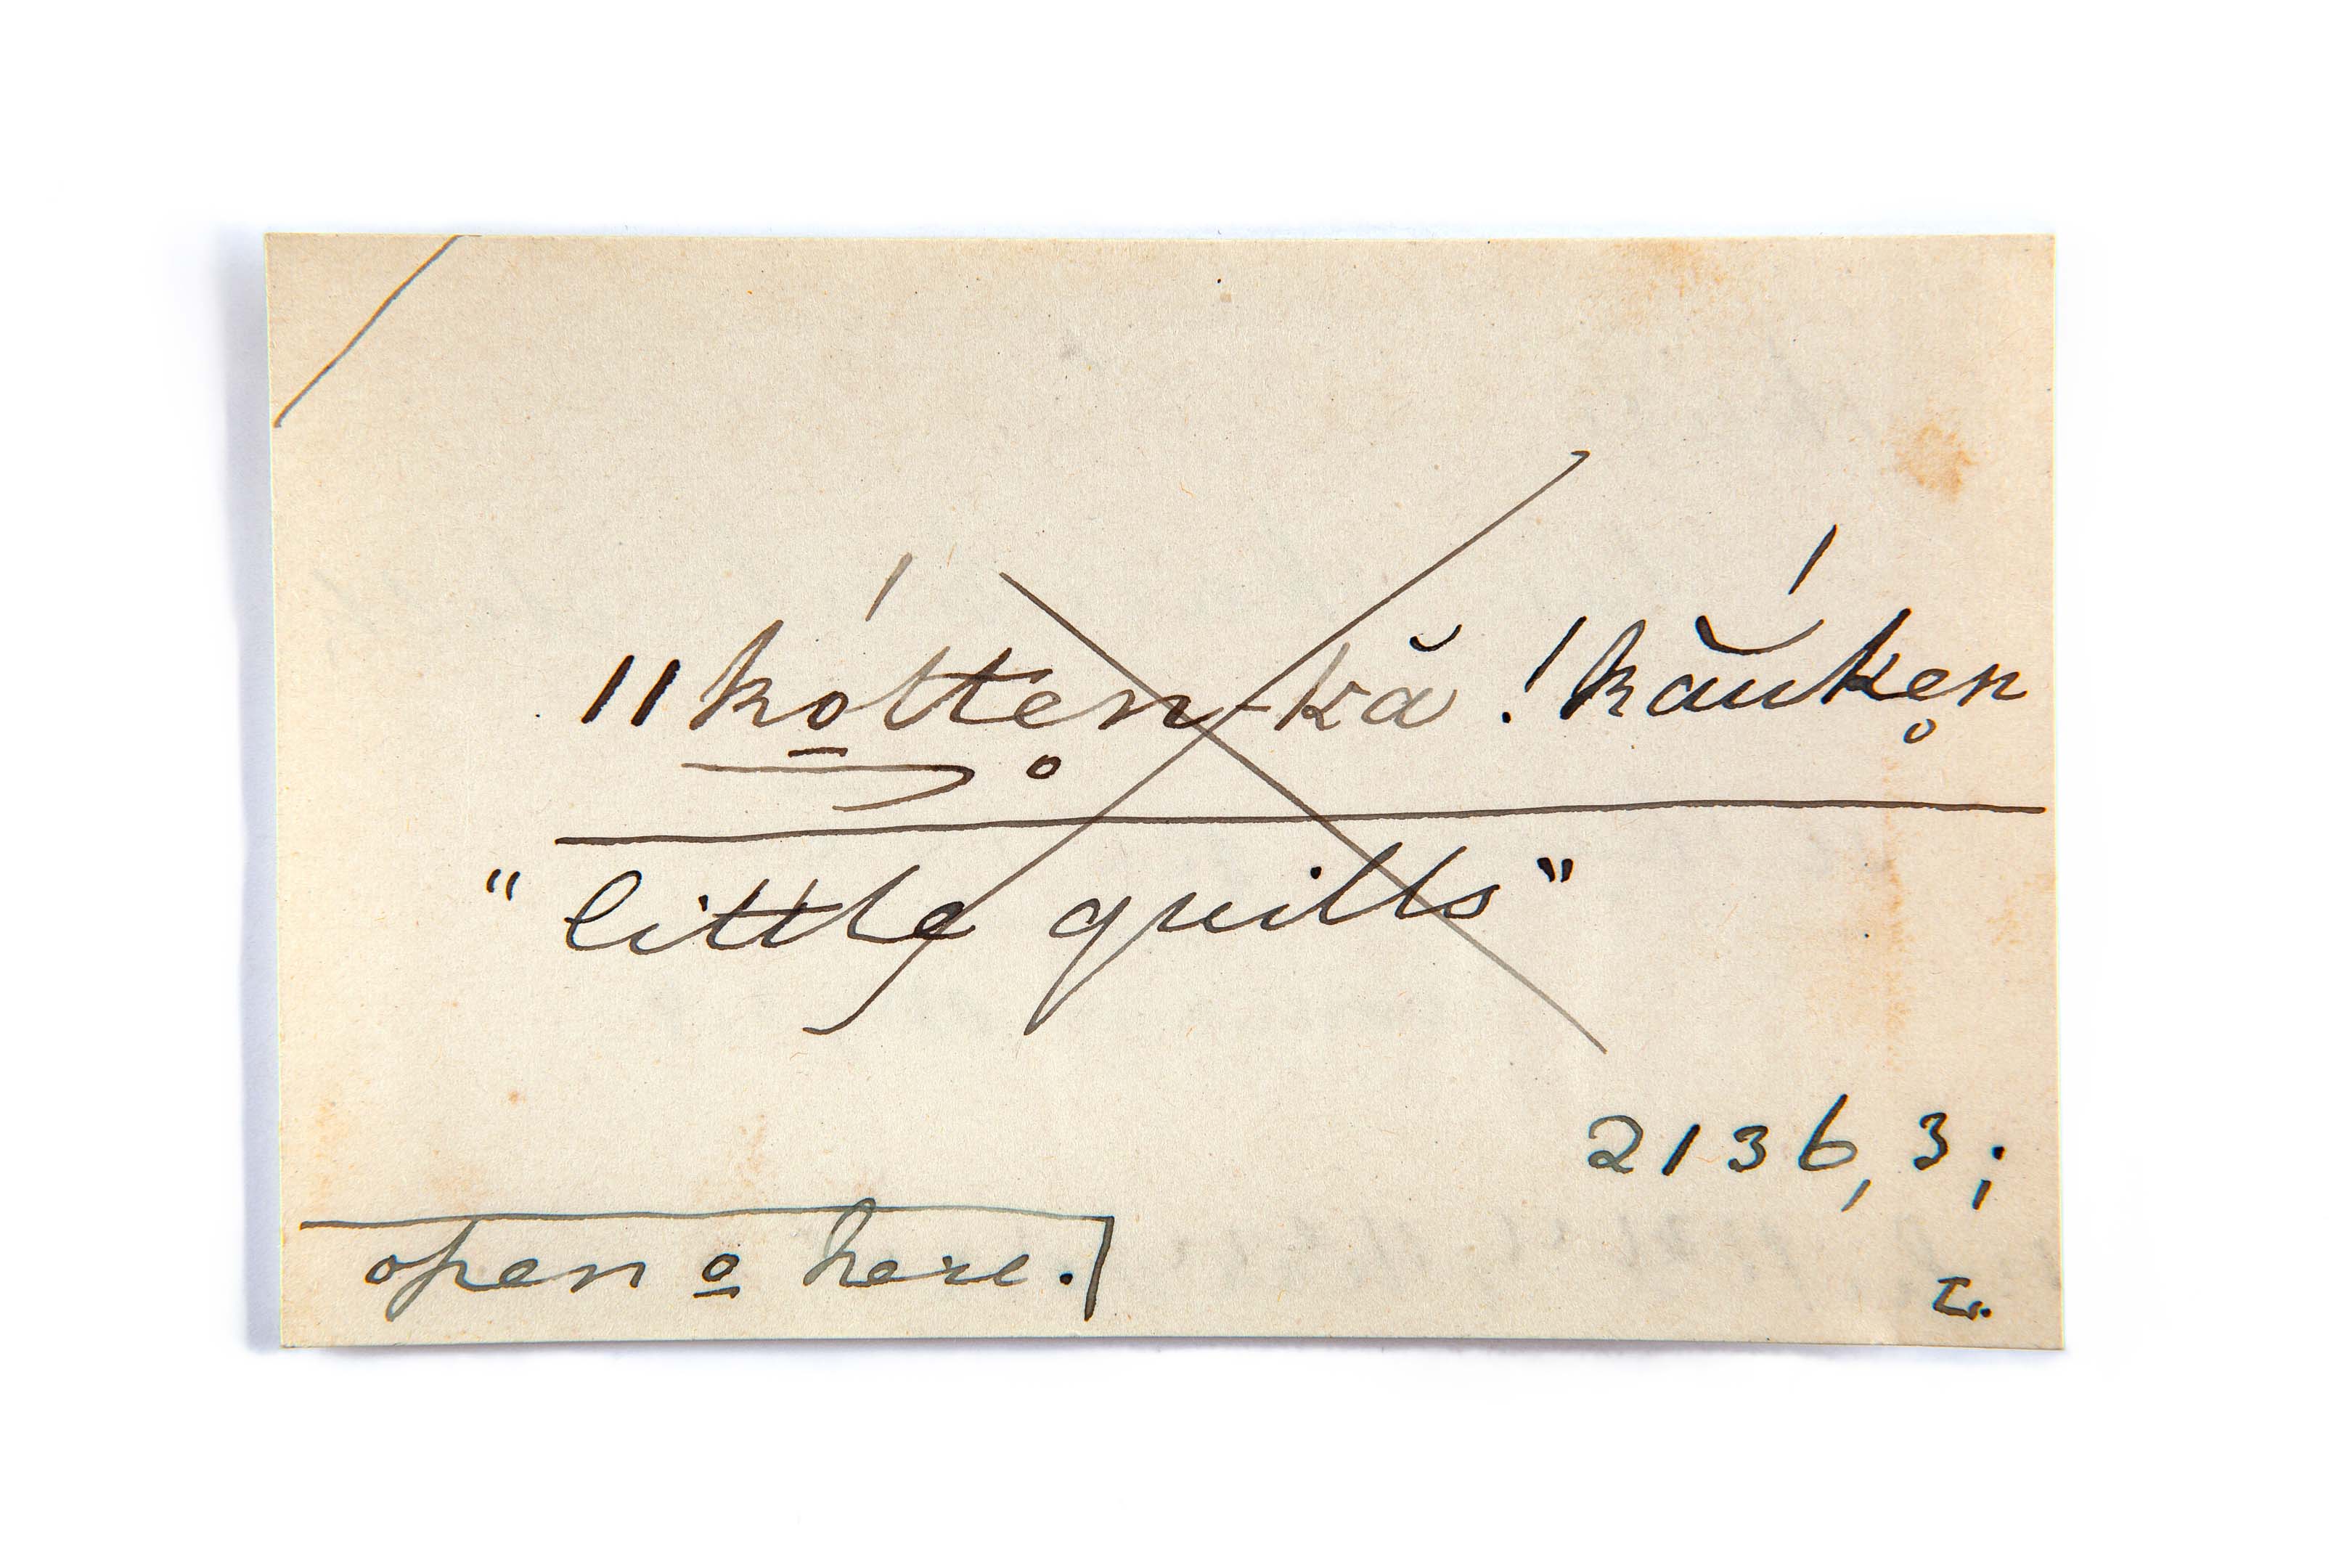 ǁkó̱tte̥n-kă ǃkắuke̥n
"little quills"
2136, 3;
open o̱ here.]
L.